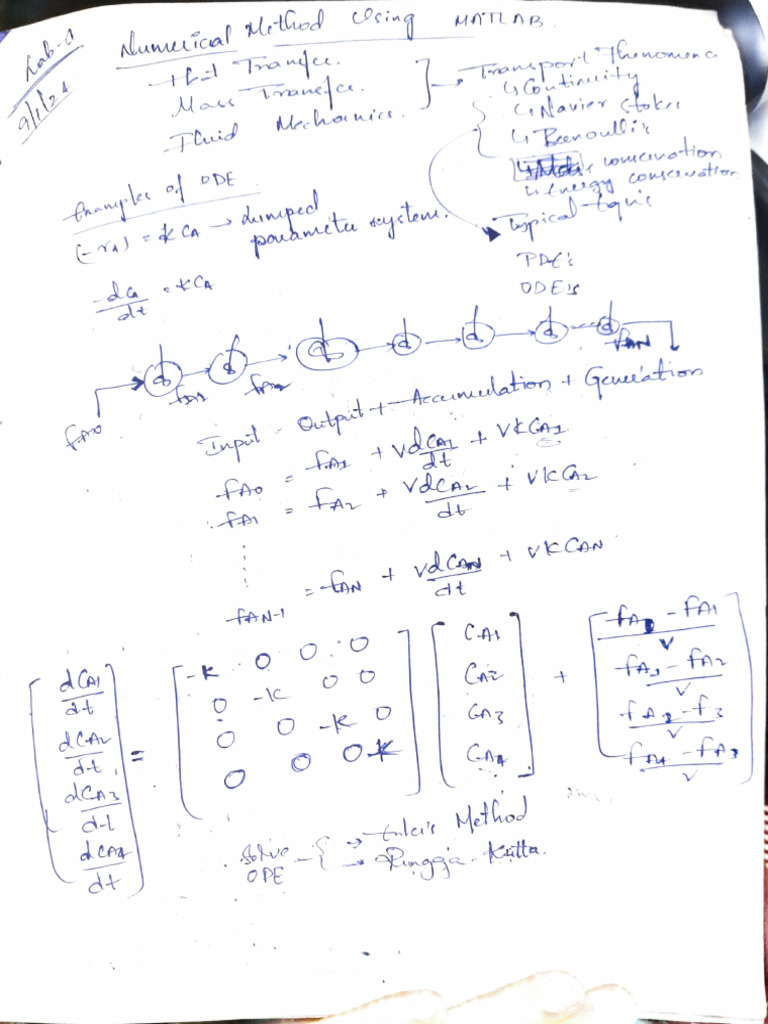 Lab-1
9/1/24
Numerical Method Using MATLAB
Heat Transfer
Mass Transfer
Fluid Mechanics.
→ Transport Phenomena
↳ Continuity
↳ Navier Stokes
↳ Bernoulli's
conservation
↳ Energy conservation
Typical Eqn's
PDE's
ODE's
Examples of ODE
(-rA) = kCA → Lumped
parameter system.
-dCA/dt = kCA
FA0 FA1 FA2 FAN
Input = Output + Accumulation + Generation
FA0 = FA1 + VdCA1/dt + VKCA1
FA1 = FA2 + VdCA2/dt + VKCA2
FAN-1 = FAN + VdCAN/dt + VKCAN
[dCA1/dt dCA2/dt dCA3/dt dCA4/dt] = [-K 0 0 0; 0 -K 0 0; 0 0 -K 0; 0 0 0 -K] [CA1 CA2 CA3 CA4] + [FA0 - FA1/V FA1 - FA2/V FA2 - F3/V FA4 - FA3/V]
Solve ODE → Euler's Method
→ Rungga-Kutta.